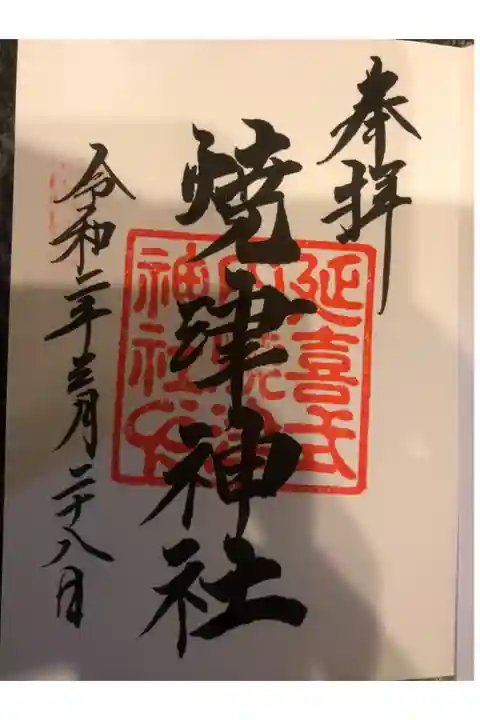 奉拝
焼津神社
延喜式
内焼津
神社印
令和二年三月二十八日